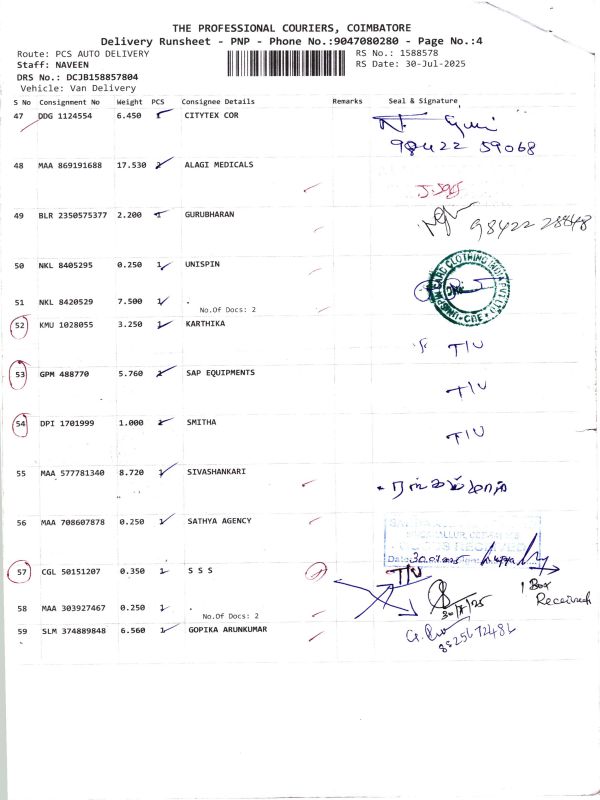 THE PROFESSIONAL COURIERS, COIMBATORE
Delivery Runsheet - PNP - Phone No.:9047080280 - Page No.:4
Route: PCS AUTO DELIVERY RS No.: 1588578
Staff: NAVEEN RS Date: 30-Jul-2025
DRS No.: DCJB158857804
Vehicle: Van Delivery
S No Consignment No Weight PCS Consignee Details Remarks Seal & Signature
47 DDG 1124554 6.450 CITYTEX COR
98422 59068
48 MAA 869191688 17.530 ALAGI MEDICALS
49 BLR 2350575377 2.200 GURUBHARAN 98422 28848
50 NKL 8405295 0.250 1 UNISPIN
51 NKL 8420529 7.500 1 .
No.Of Docs: 2
52 KMU 1028055 3.250 1 KARTHIKA
T/U
53 GPM 488770 5.760 SAP EQUIPMENTS
T/U
54 DPI 1701999 1.000 SMITHA
T/U
55 MAA 577781340 8.720 1 SIVASHANKARI
56 MAA 708607878 0.250 1 SATHYA AGENCY
57 CGL 50151207 0.350 1 S S S T/U
1 Box
Received
58 MAA 303927467 0.250 1 .
No.Of Docs: 2 30/7/25
59 SLM 374889848 6.560 1 GOPIKA ARUNKUMAR